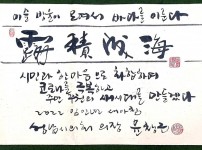 이슬 방울이 모여서 바다를 이룬다
露積成海
시민과 한마음으로 화합하며
코로나를 극복하고
수면 위로의 새시대를 만들겠다
2022 임인년 새아침
성남시의회 의장 윤창근